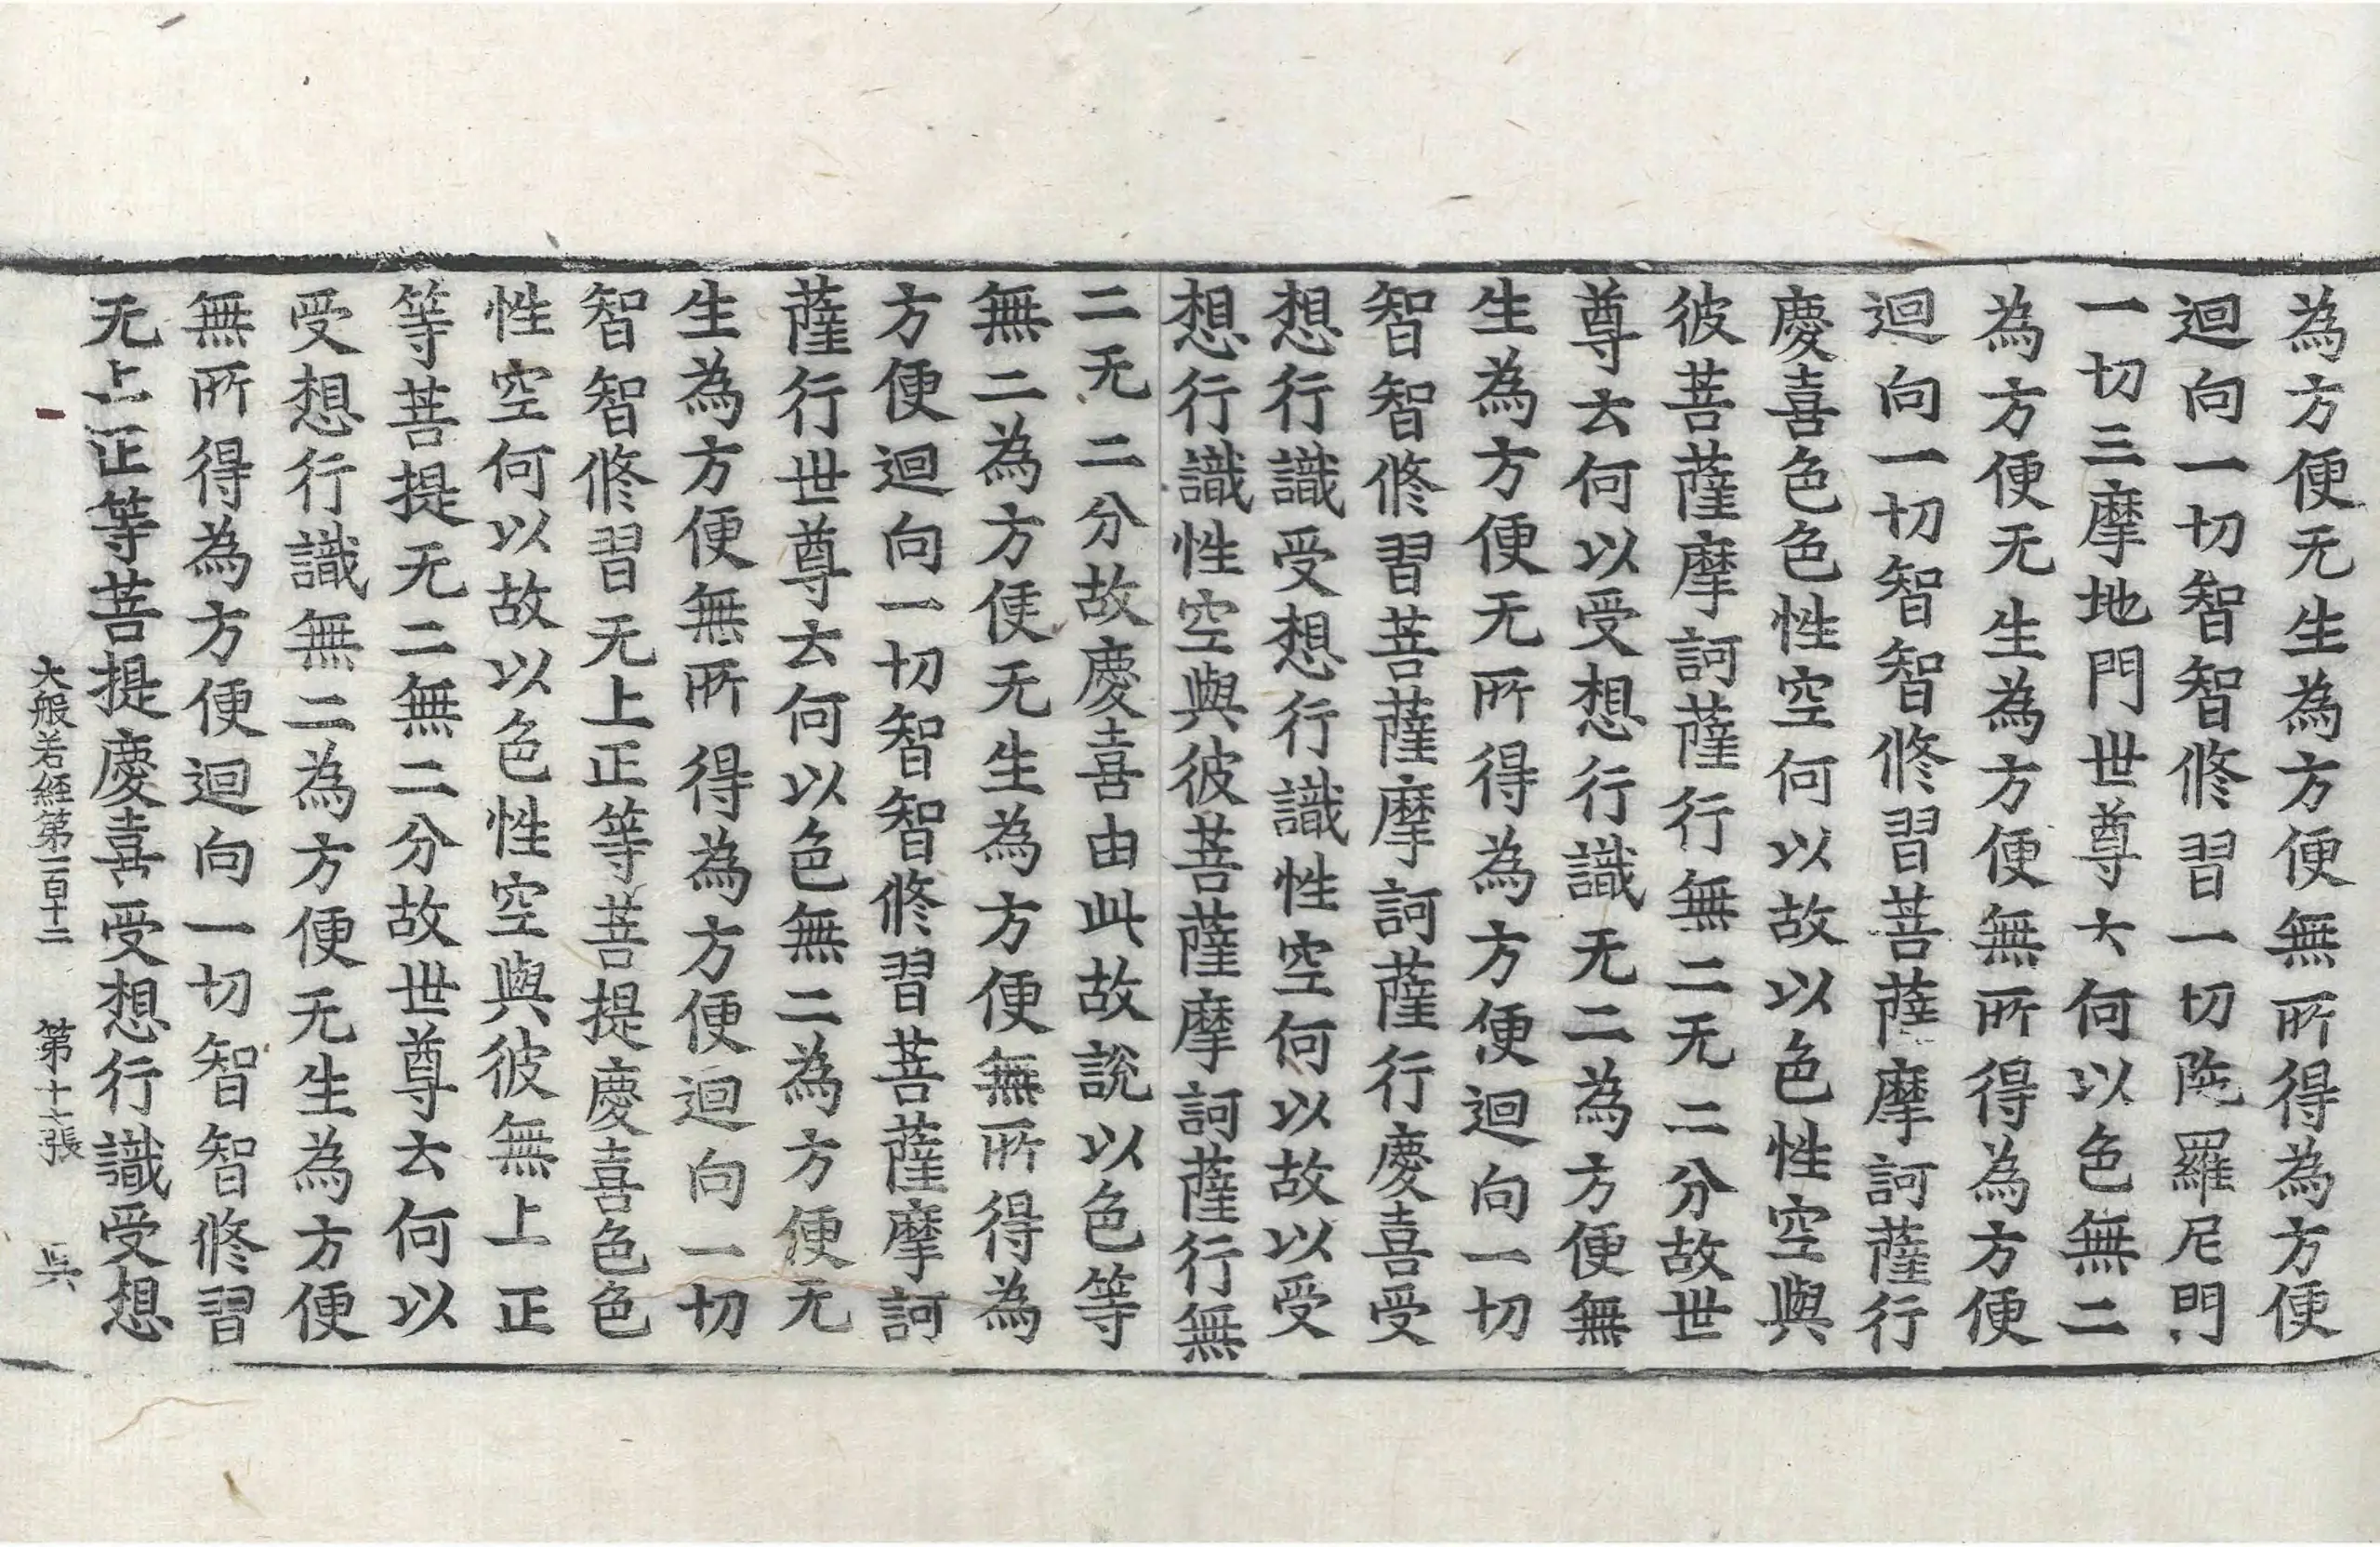 為方便无生為方便無所得為方便
迴向一切智智修習一切陁羅尼門
一切三摩地門世尊云何以色無二
為方便无生為方便無所得為方便
迴向一切智智修習菩薩摩訶薩行
慶喜色色性空何以故以色性空與
彼菩薩摩訶薩行無二无二分故世
尊云何以受想行識无二為方便無
生為方便无所得為方便迴向一切
智智修習菩薩摩訶薩行慶喜受
想行識受想行識性空何以故以受
想行識性空與彼菩薩摩訶薩行無
二无二分故慶喜由此故說以色等
無二為方便无生為方便無所得為
方便迴向一切智智修習菩薩摩訶
薩行世尊云何以色無二為方便无
生為方便無所得為方便迴向一切
智智修習无上正等菩提慶喜色色
性空何以故以色性空與彼無上正
等菩提无二無二分故世尊云何以
受想行識無二為方便无生為方便
無所得為方便迴向一切智智修習
无上正等菩提慶喜受想行識受想
大般若經第一百十二 第十七張 吳